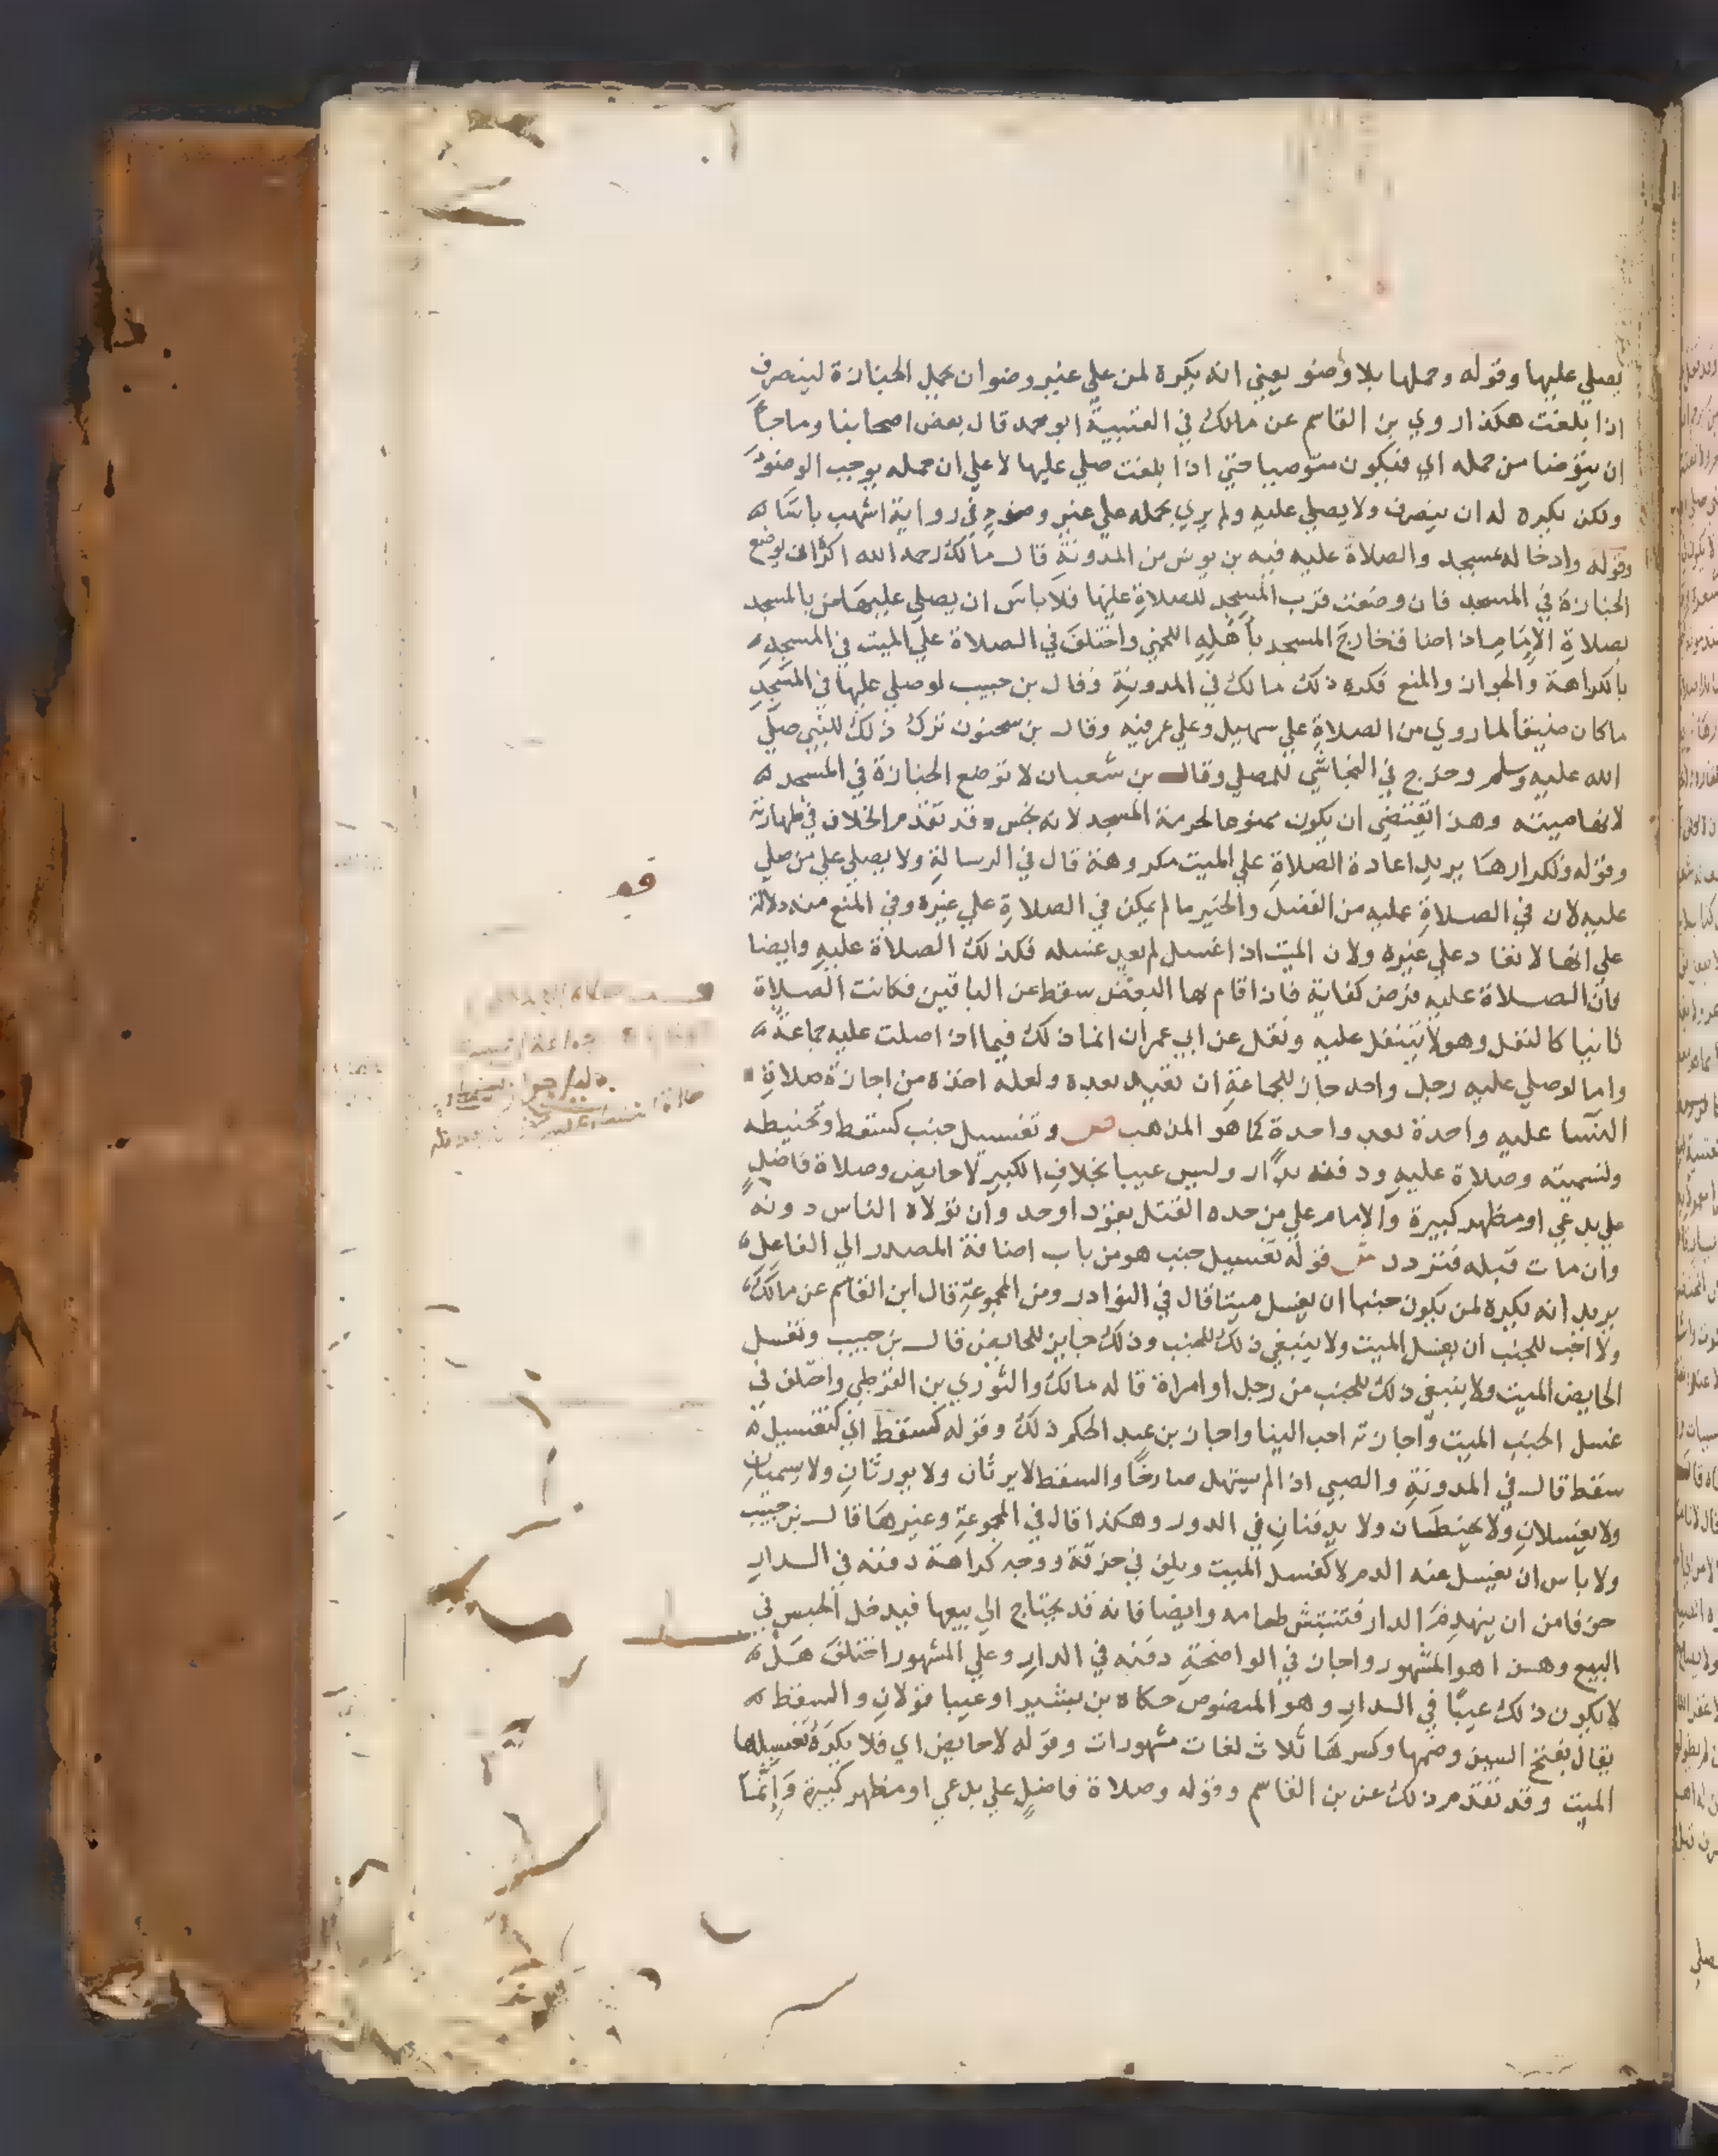 يصلي عليها وقوله وحملها بلا وضو يعني انه يكره لمن علي غير وضو ان يحمل الجنازة لينصرف
اذا بلغت هكذا روي بن القاسم عن مالك في العتبية ابو محمد قال بعض اصحابنا وما جا
ان يتوضا من حمله اي فيكون متوضيا حتي اذا بلغت صلي عليها لا علي ان حمله يوجب الوضو
ولكن يكره له ان ينصرف ولا يصلي عليه ولم يري بحمله علي غير وضو في رواية اشهب باسا
وقوله وادخاله مسجد والصلاة عليه فيه بن يونس من المدونة قال مالك رحمه الله اكره ان يوضع
الجنازة في المسجد فان وضعت قرب المسجد للصلاة عليها فلا باس ان يصلي عليها من بالمسجد
بصلاة الامام اذا ضاق خارج المسجد باهله اللخمي واختلف في الصلاة علي الميت في المسجد
بالكراهة والجواز والمنع فكره ذلك مالك في المدونة وقال بن حبيب لو صلي عليها في المسجد
ما كان ضيقا لما روي من الصلاة علي سهيل وعلي عمر فيه وقال بن سحنون ترك ذلك للنبي صلي
الله عليه وسلم وخرج في النجاشي للمصلي وقال بن شعبان لا توضع الجنازة في المسجد
لانها ميتة وهذا يقتضي ان يكون ممنوعا لحرمة المسجد لانه نجس وقد تقدم الخلاف في طهارته
وقوله وتكرارها يريد اعادة الصلاة علي الميت مكروهة قال في الرسالة ولا يصلي علي من صلي
عليه لان في الصلاة عليه من الفضل والخير ما لم يكن في الصلاة علي غيره وفي المنع منه دلالة
علي انها لا تعاد علي غيره ولان الميت اذا غسل لم يعد غسله فكذلك الصلاة عليه وايضا
فان الصلاة عليه فرض كفاية فاذا قام بها البعض سقط عن الباقين فكانت الصلاة
ثانيا كالنفل وهو لا يتنفل عليه ونقل عن ابي عمران انما ذلك فيما اذا صلت عليه جماعة
واما لو صلي عليه رجل واحد جاز للجماعة ان تعيد بعده ولعله اخذه من اجازة صلاة
النسا عليه واحدة بعد واحدة كما هو المذهب ص وتغسيل جنب كسقط وتحنيطه
وتسميته وصلاة عليه ودفنه بدار وليس عيبا بخلاف الكبير لا حايض وصلاة فاضل
علي بدعي او مظهر كبيرة والامام علي من حده القتل بقود او حد وان تولاه الناس دونه
وان مات قبله فتردد ش قوله تغسيل جنب هو من باب اضافة المصدر الي الفاعل
يريد انه يكره لمن يكون جنبا ان يغسل ميتا قال في النوادر ومن المجموعة قال ابن القاسم عن مالك
ولا احب للجنب ان يغسل الميت ولا ينبغي ذلك للجنب وذلك جايز للحايض قال بن حبيب وتغسل
الحايض الميت ولا ينبغي ذلك للجنب من رجل او امراة قاله مالك والثوري بن القرطي واختلف في
غسل الجنب الميت واجازته احب الينا واجاز بن عبد الحكم ذلك وقوله كسقط اي كتغسيل
سقط قال في المدونة والصبي اذا لم يستهل صارخا والسقط لا يرثان ولا يورثان ولا يسميان
ولا يغسلان ولا يحنطان ولا يدفنان في الدور وهكذا قال في المجموعة وغيرها قال بن حبيب
ولا باس ان يغسل عنه الدم لا كغسل الميت ويلف في خرقة ووجه كراهة دفنه في الدار
خوفا من ان ينهدم الدار فتنتبش عظامه وايضا فانه قد يحتاج الي بيعها فيدخل الحبس في
البيع وهذا هو المشهور واجاز في الواضحة دفنه في الدار وعلي المشهور اختلف هل
لا يكون ذلك عيبا في الدار وهو المنصوص حكاه بن بشير او عيبا قولان والسقط
يقال بفتح السين وضمها وكسرها ثلاث لغات مشهورات وقوله لا حايض اي فلا يكره تغسيلها
الميت وقد تقدم ذلك عن بن القاسم وقوله وصلاة فاضل علي بدعي او مظهر كبيرة وانما